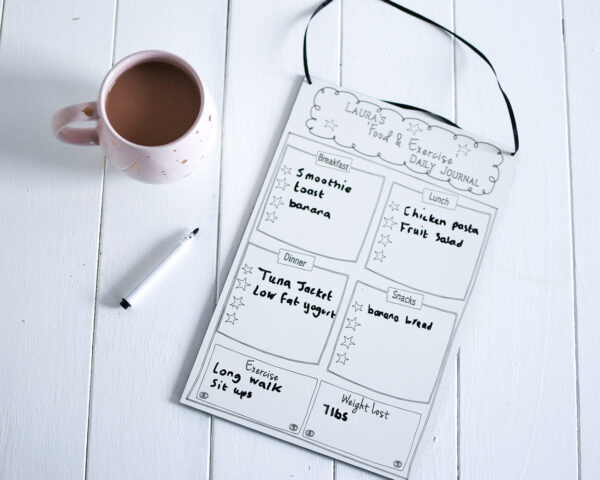 LAURA'S
Food & Exercise
DAILY JOURNAL
Breakfast
Smoothie
toast
banana
Lunch
Chicken pasta
Fruit Salad
Dinner
Tuna Jacket
Low Fat yogurt
Snacks
banana bread
Exercise
Long walk
Sit ups
Weight Lost
7lbs